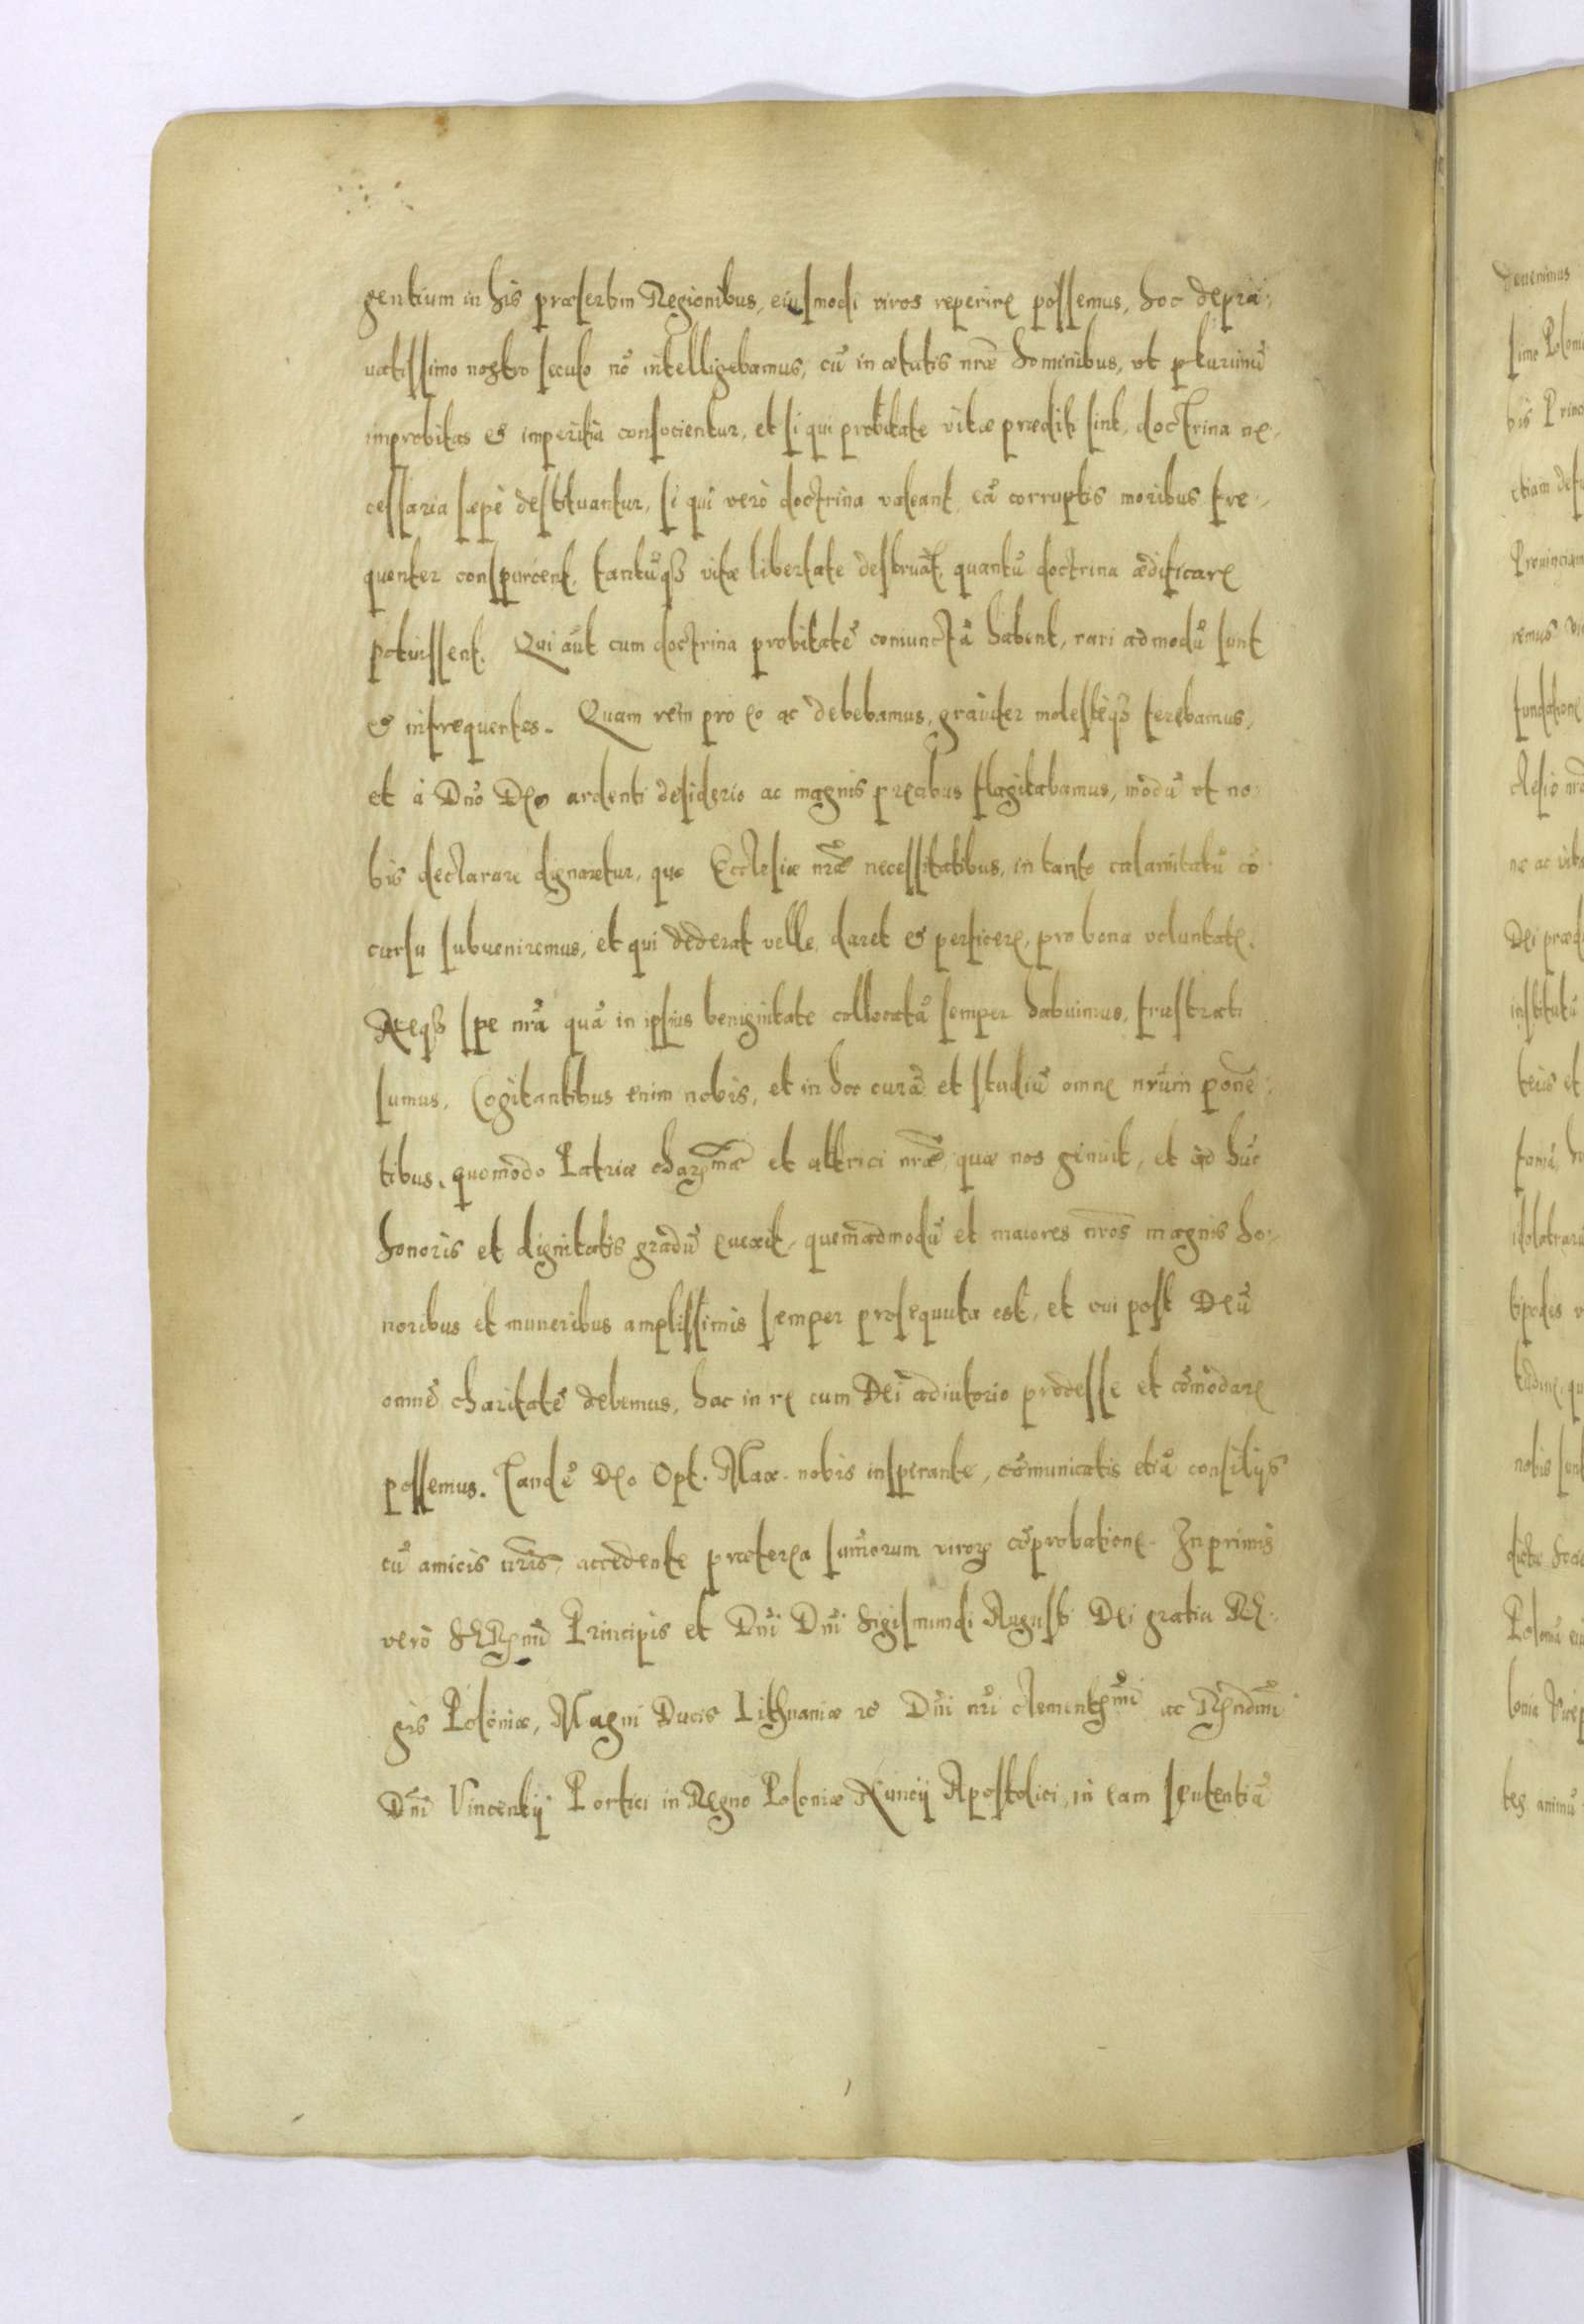 gentium in his præsertim Regionibus, eiusmodi viros reperire possemus, hoc depra:
uatissimo nostro seculo nō intelligebamus, cū in ætatis nr̄æ hominibus, vt plurimū
improbitas & imperitia consocientur, et si qui probitate vitæ præditi sint, doctrina ne-
cessaria sæpè destituantur, si qui verò doctrina valeant, eā corruptis moribus fre-
quenter conspurcent, tantūqȝ vitæ libertate destruāt, quantū doctrina ædificare
potuissent. Qui aūt cum doctrina probitatē coniunctā habent, rari admodū sunt
& infrequentes. Quam rem pro eo ac debebamus, grauiter molestèqȝ ferebamus,
et à Dn̄o Deo ardenti desiderio ac magnis precibus flagitabamus, modū vt no-
bis declarare dignaretur, quo Ecclesiæ nr̄æ necessitatibus, in tanto calamitatū cō-
cursu subueniremus, et qui dederat velle, daret & perficere, pro bona voluntate.
Neqȝ spe nr̄a quā in ipsius benignitate collocatā semper habuimus, frustrati
sumus. Cogitantibus enim nobis, et in hoc curā et studiū omne nr̄um ponē-
tibus, quomodo Patriæ charᵐæ et altrici nr̄æ, quæ nos genuit, et ad hūc
honoris et dignitatis gradū euexit, quemadmodū et maiores nr̄os magnis ho-
noribus et muneribus amplissimis semper prosequuta est, et cui post Deū
omnē charitatē debemus, hac in re cum Dei adiutorio prodesse et cōmodare
possemus. Tandē Deo Opt. Max. nobis inspirante, cōmunicatis etiā consilijs
cū amicis nr̄is, accedente præterea sum̄orum virorꝝ cōprobatione. In primis
verò Principis et Dn̄i Dn̄i Sigismundi Augusti Dei gratia Re-
gis Poloniæ, Magni Ducis Lithuaniæ &c Dn̄i nr̄i clementᵐⁱ ac Rn̄dmi
Dn̄i Vincentij Portici in Regno Poloniæ Nuncij Apostolici, in eam sententiā